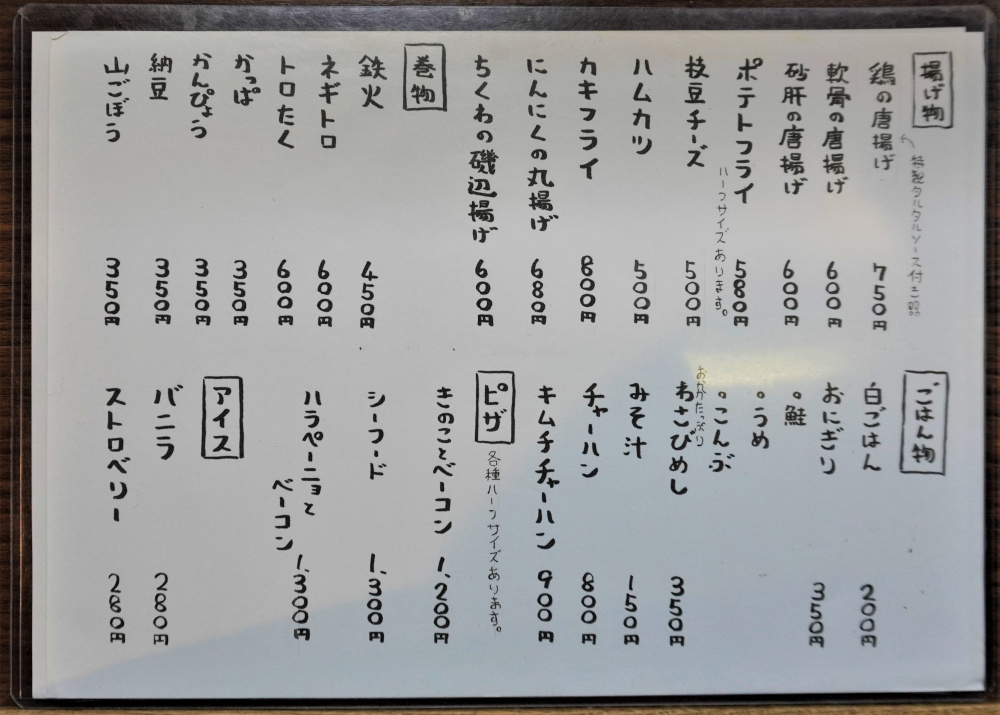 揚げ物
鶏の唐揚げ 750円
特製タルタルソース付き
軟骨の唐揚げ 600円
砂肝の唐揚げ 600円
ポテトフライ 580円
ハーフサイズあります。
枝豆チーズ 500円
ハムカツ 500円
カキフライ 800円
にんにくの丸揚げ 680円
ちくわの磯辺揚げ 600円
巻物
鉄火 450円
ネギトロ 600円
トロたく 600円
かっぱ 350円
かんぴょう 350円
納豆 350円
山ごぼう 350円
ごはん物
白ごはん 200円
おにぎり 350円
○鮭
○うめ
○こんぶ
おかかたっぷり
わさびめし 350円
みそ汁 150円
チャーハン 800円
キムチチャーハン 900円
ピザ
各種ハーフサイズあります。
きのことベーコン 1,200円
シーフード 1,300円
ハラペーニョと
ベーコン 1,300円
アイス
バニラ 280円
ストロベリー 280円